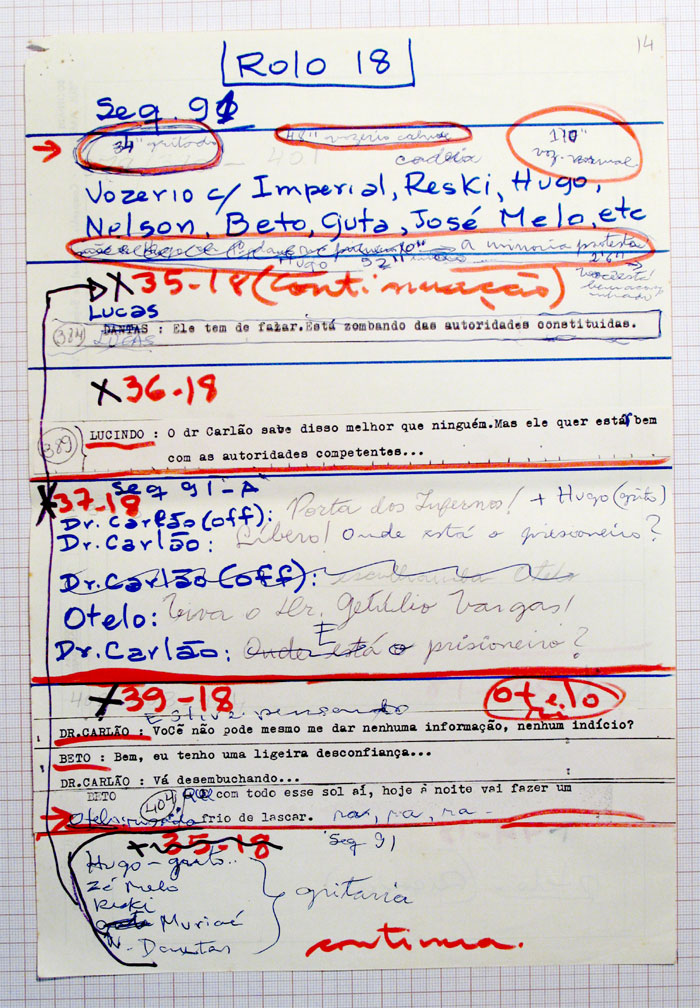 14
Rolo 18
Seq. 91
34" gritado
48" vozerio
cadeia
1'10"
voz. normal
Vozerio c/ Imperial, Reski, Hugo,
Nelson, Beto, Guta, José Melo, etc
a minoria protesta
Hugo 92"
2'6"
X 35-18 (continuação)
Lucas
(384) DANTAS : Ele tem de falar.Está zombando das autoridades constituidas.
LUCAS
X 36-18
389 LUCINDO : O dr Carlão sabe disso melhor que ninguém.Mas ele quer estar bem
com as autoridades competentes...
X 37-18 Seq 91-A
Dr. Carlão (off): Porta dos Infernos! + Hugo (grito)
Dr. Carlão: Líbero! Onde está o prisioneiro?
Dr. Carlão (off): Otelo
Otelo: Viva o Dr. Getúlio Vargas!
Dr. Carlão: Onde está o E prisioneiro?
X 39-18
Otelo
ri
Estive pensando
DR.CARLÃO : Você não pode mesmo me dar nenhuma informação, nenhum indício?
BETO : Bem, eu tenho uma ligeira desconfiança...
DR.CARLÃO : Vá desembuchando...
BETO 404 Que com todo esse sol aí, hoje à noite vai fazer um
Otelo frio de lascar. ra, ra, ra-
X 35-18 Seq 91
Hugo - grito..
Zé Melo
Reski
Muriaé
N- Dantas
gritaria
continua.